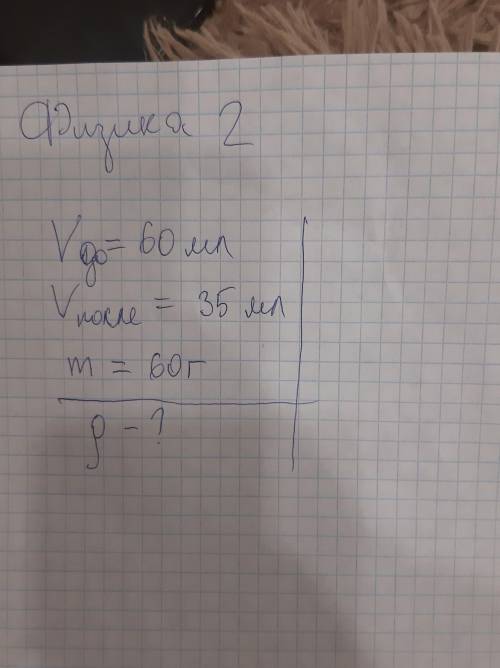 Физика 2
Vдо = 60 мл
Vпосле = 35 мл
m = 60г
ρ - ?